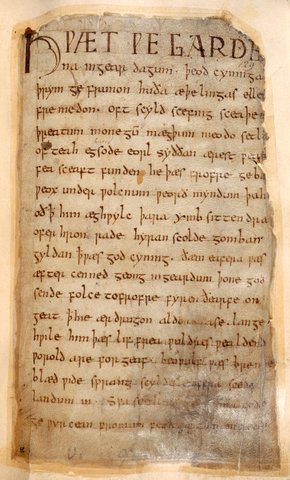 HǷÆT ǷE GARDE
na ingear dagum . þeod cyninga
þrym ge frunon huða æþelingas elle
fre medon . oft scyld scefing sceaþe
þreatum monegū mægþum meodo setl
of teah egsode eorl syððan ærest ƿear
fea sceaft funden he þæs frofre geba
ƿeox under ƿolcnum ƿeorð myndum þah
oð ꝥ him æghƿylc þara ymb sittendra
ofer hron rade hyran scolde gomban
gyldan ꝥ ƿæs god cyning . ðæm eafera ƿæs
æfter cenned geong ingeardum þone god
sende folce tofrofre fyren ðearfe on
geat ꝥ hie ær drugon aldor ase . lange
hƿile him þæs lif frea ƿuldres ƿealdend
ƿorold are forgeaf . beoƿulf ƿæs breme
blæd ƿide sprang scyldes eafera scede
landum in . Sƿa sceal uma gode
ge ƿyrcean fromum feoh giftum on